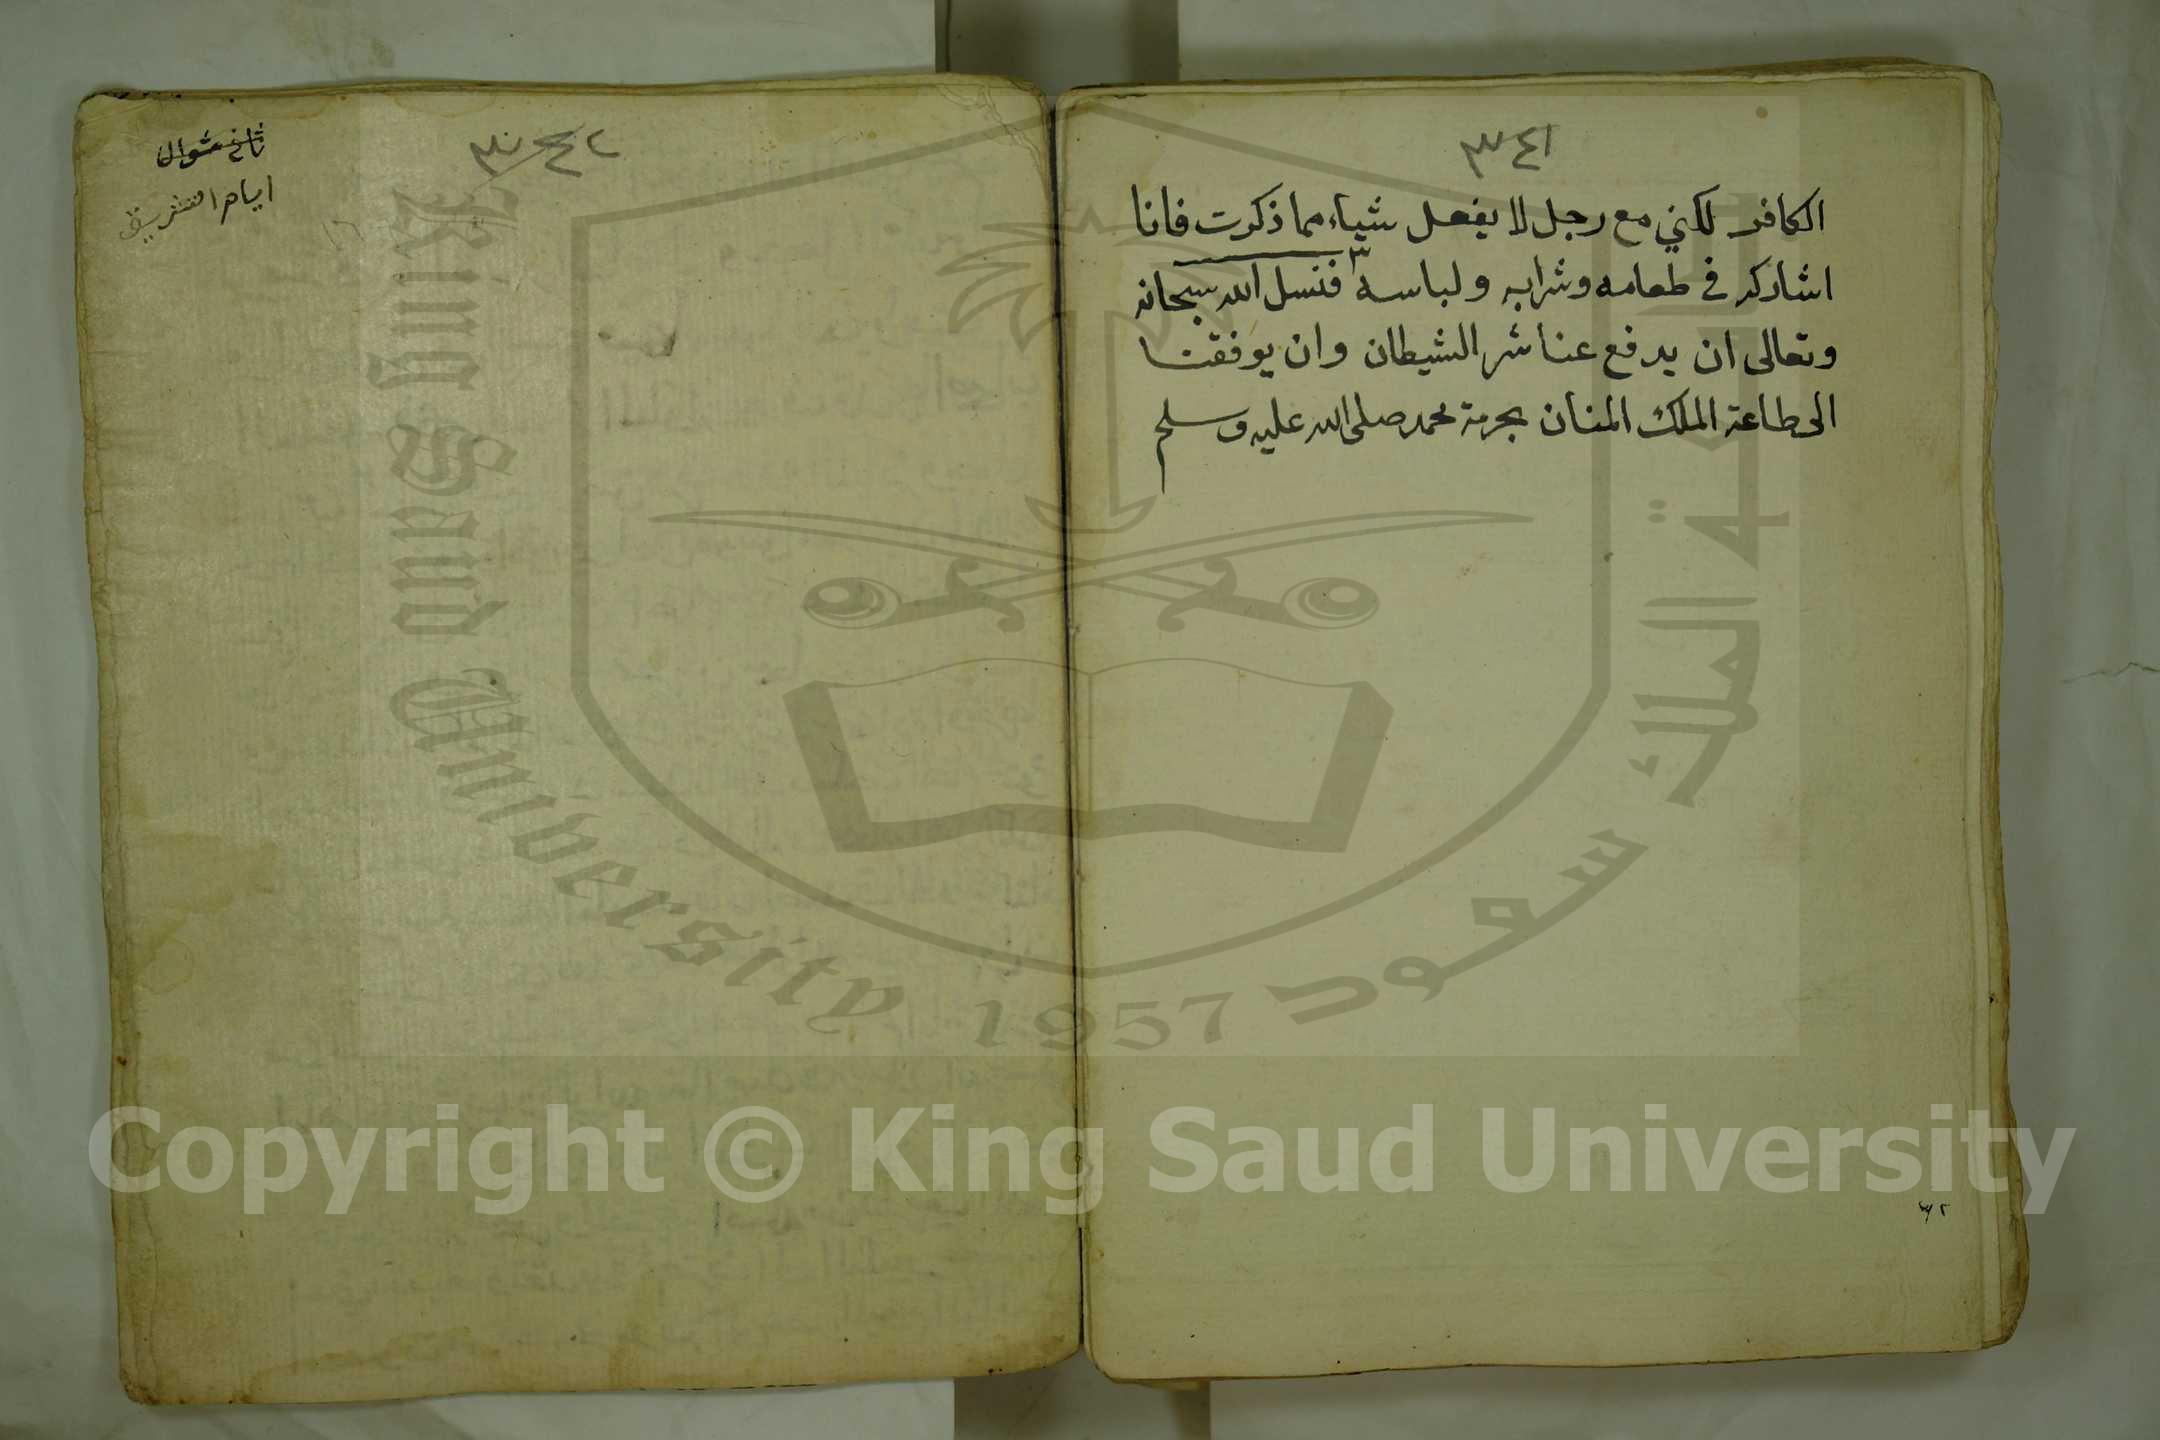 ٣٤١
الكافر لكني مع رجل لا يفعل شياء مما ذكرت فانا
اشاركه في طعامه وشرابه ولباسه ٣ فنسل الله سبحانه
وتعالى ان يدفع عنا شر الشيطان وان يوفقنا
الى طاعة الملك المنان بحرمة محمد صلى الله عليه وسلم
٣٤٢
ثاني شوال
ايام التشريق
King Saud University
1957
جامعة الملك سعود
Copyright © King Saud University